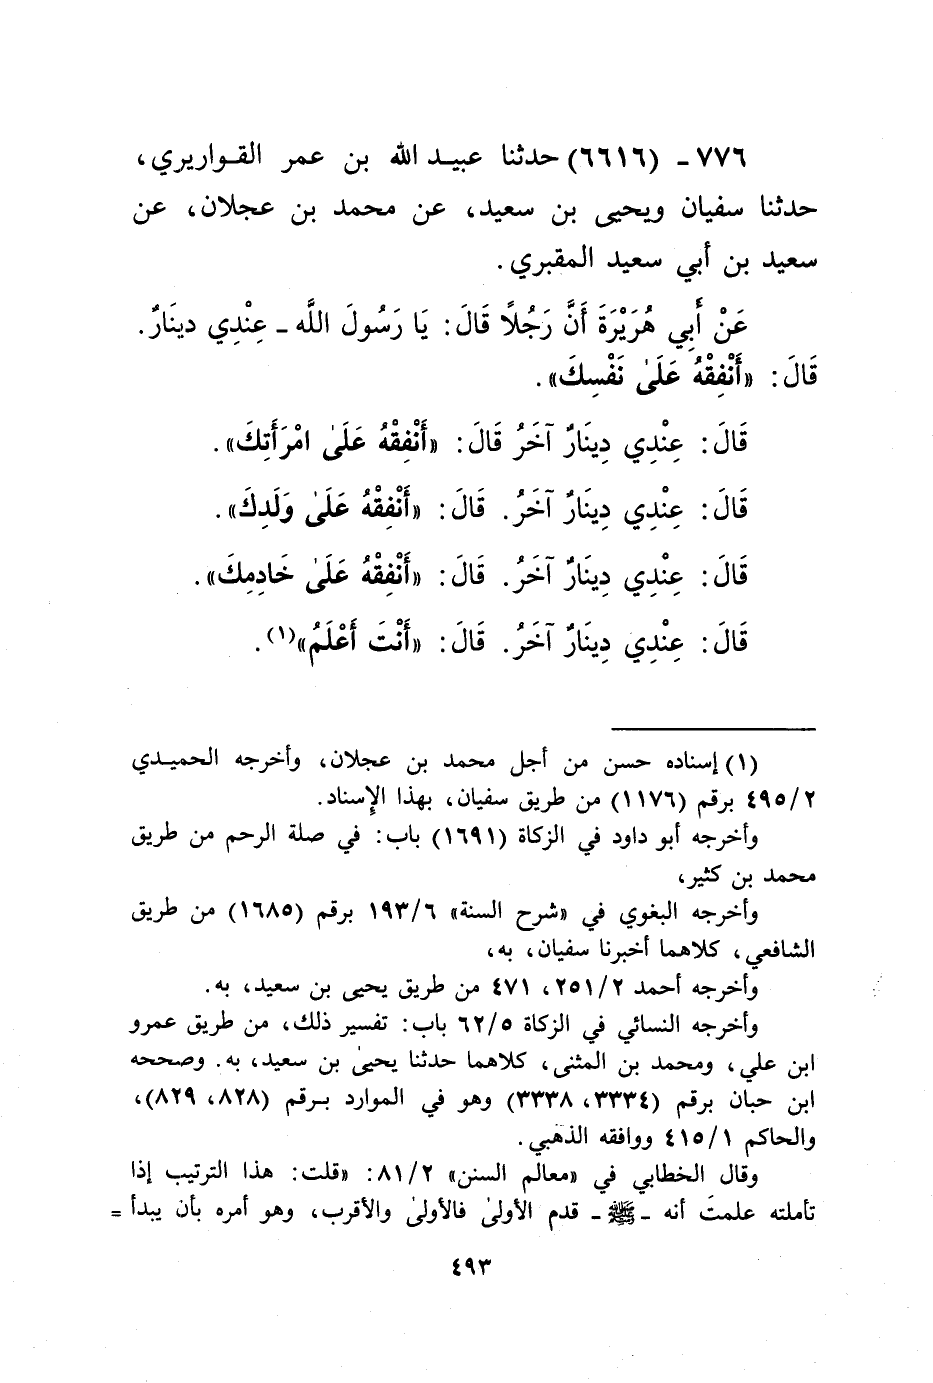 ٧٧٦ - (٦٦١٦) حدثنا عبيد الله بن عمر القواريري،
حدثنا سفيان ويحيى بن سعيد، عن محمد بن عجلان، عن
سعيد بن أبي سعيد المقبري.
عَنْ أَبِي هُرَيْرَةَ أَنَّ رَجُلًا قَالَ: يَا رَسُولَ اللَّه - عِنْدِي دينَارٌ.
قَالَ: «أَنْفِقْهُ عَلَىٰ نَفْسِكَ».
قَالَ: عِنْدِي دِينَارٌ آخَرُ قَالَ: «أَنْفِقْهُ عَلَىٰ امْرَأَتِكَ».
قَالَ: عِنْدِي دِينَارٌ آخَرُ. قَالَ: «أَنْفِقْهُ عَلَىٰ وَلَدِكَ».
قَالَ: عِنْدِي دِينَارٌ آخَرُ. قَالَ: «أَنْفِقْهُ عَلَىٰ خَادِمِكَ».
قَالَ: عِنْدِي دِينَارٌ آخَرُ. قَالَ: «أَنْتَ أَعْلَمُ»(١).
(١) إسناده حسن من أجل محمد بن عجلان، وأخرجه الحميدي
٤٩٥/٢ برقم (١١٧٦) من طريق سفيان، بهذا الإِسناد.
وأخرجه أبو داود في الزكاة (١٦٩١) باب: في صلة الرحم من طريق
محمد بن كثير،
وأخرجه البغوي في «شرح السنة» ١٩٣/٦ برقم (١٦٨٥) من طريق
الشافعي، كلاهما أخبرنا سفيان، به،
وأخرجه أحمد ٢٥١/٢، ٤٧١ من طريق يحيى بن سعيد، به.
وأخرجه النسائي في الزكاة ٦٢/٥ باب: تفسير ذلك، من طريق عمرو
ابن علي، ومحمد بن المثنى، كلاهما حدثنا يحيىٰ بن سعيد، به. وصححه
ابن حبان برقم (٣٣٣٤، ٣٣٣٨) وهو في الموارد برقم (٨٢٨، ٨٢٩)،
والحاكم ٤١٥/١ ووافقه الذهبي.
وقال الخطابي في «معالم السنن» ٨١/٢: «قلت: هذا الترتيب إذا
تأملته علمتَ أنه - ﷺ - قدم الأولىٰ فالأولىٰ والأقرب، وهو أمره بأن يبدأ =
٤٩٣